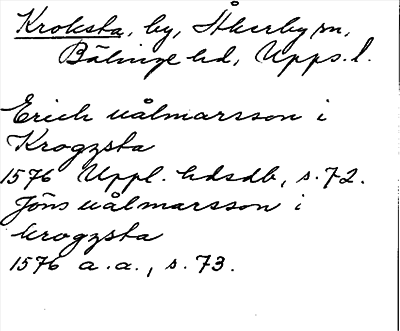 Kroksta, by, Åkerby sn,
Bälinge hd, Upps. l.
Erich uålmarsson i
Krogzsta
1576 Uppl. hdsdb, s. 72.
Jöns uålmarsson i
krogzsta
1576 a.a., s. 73.